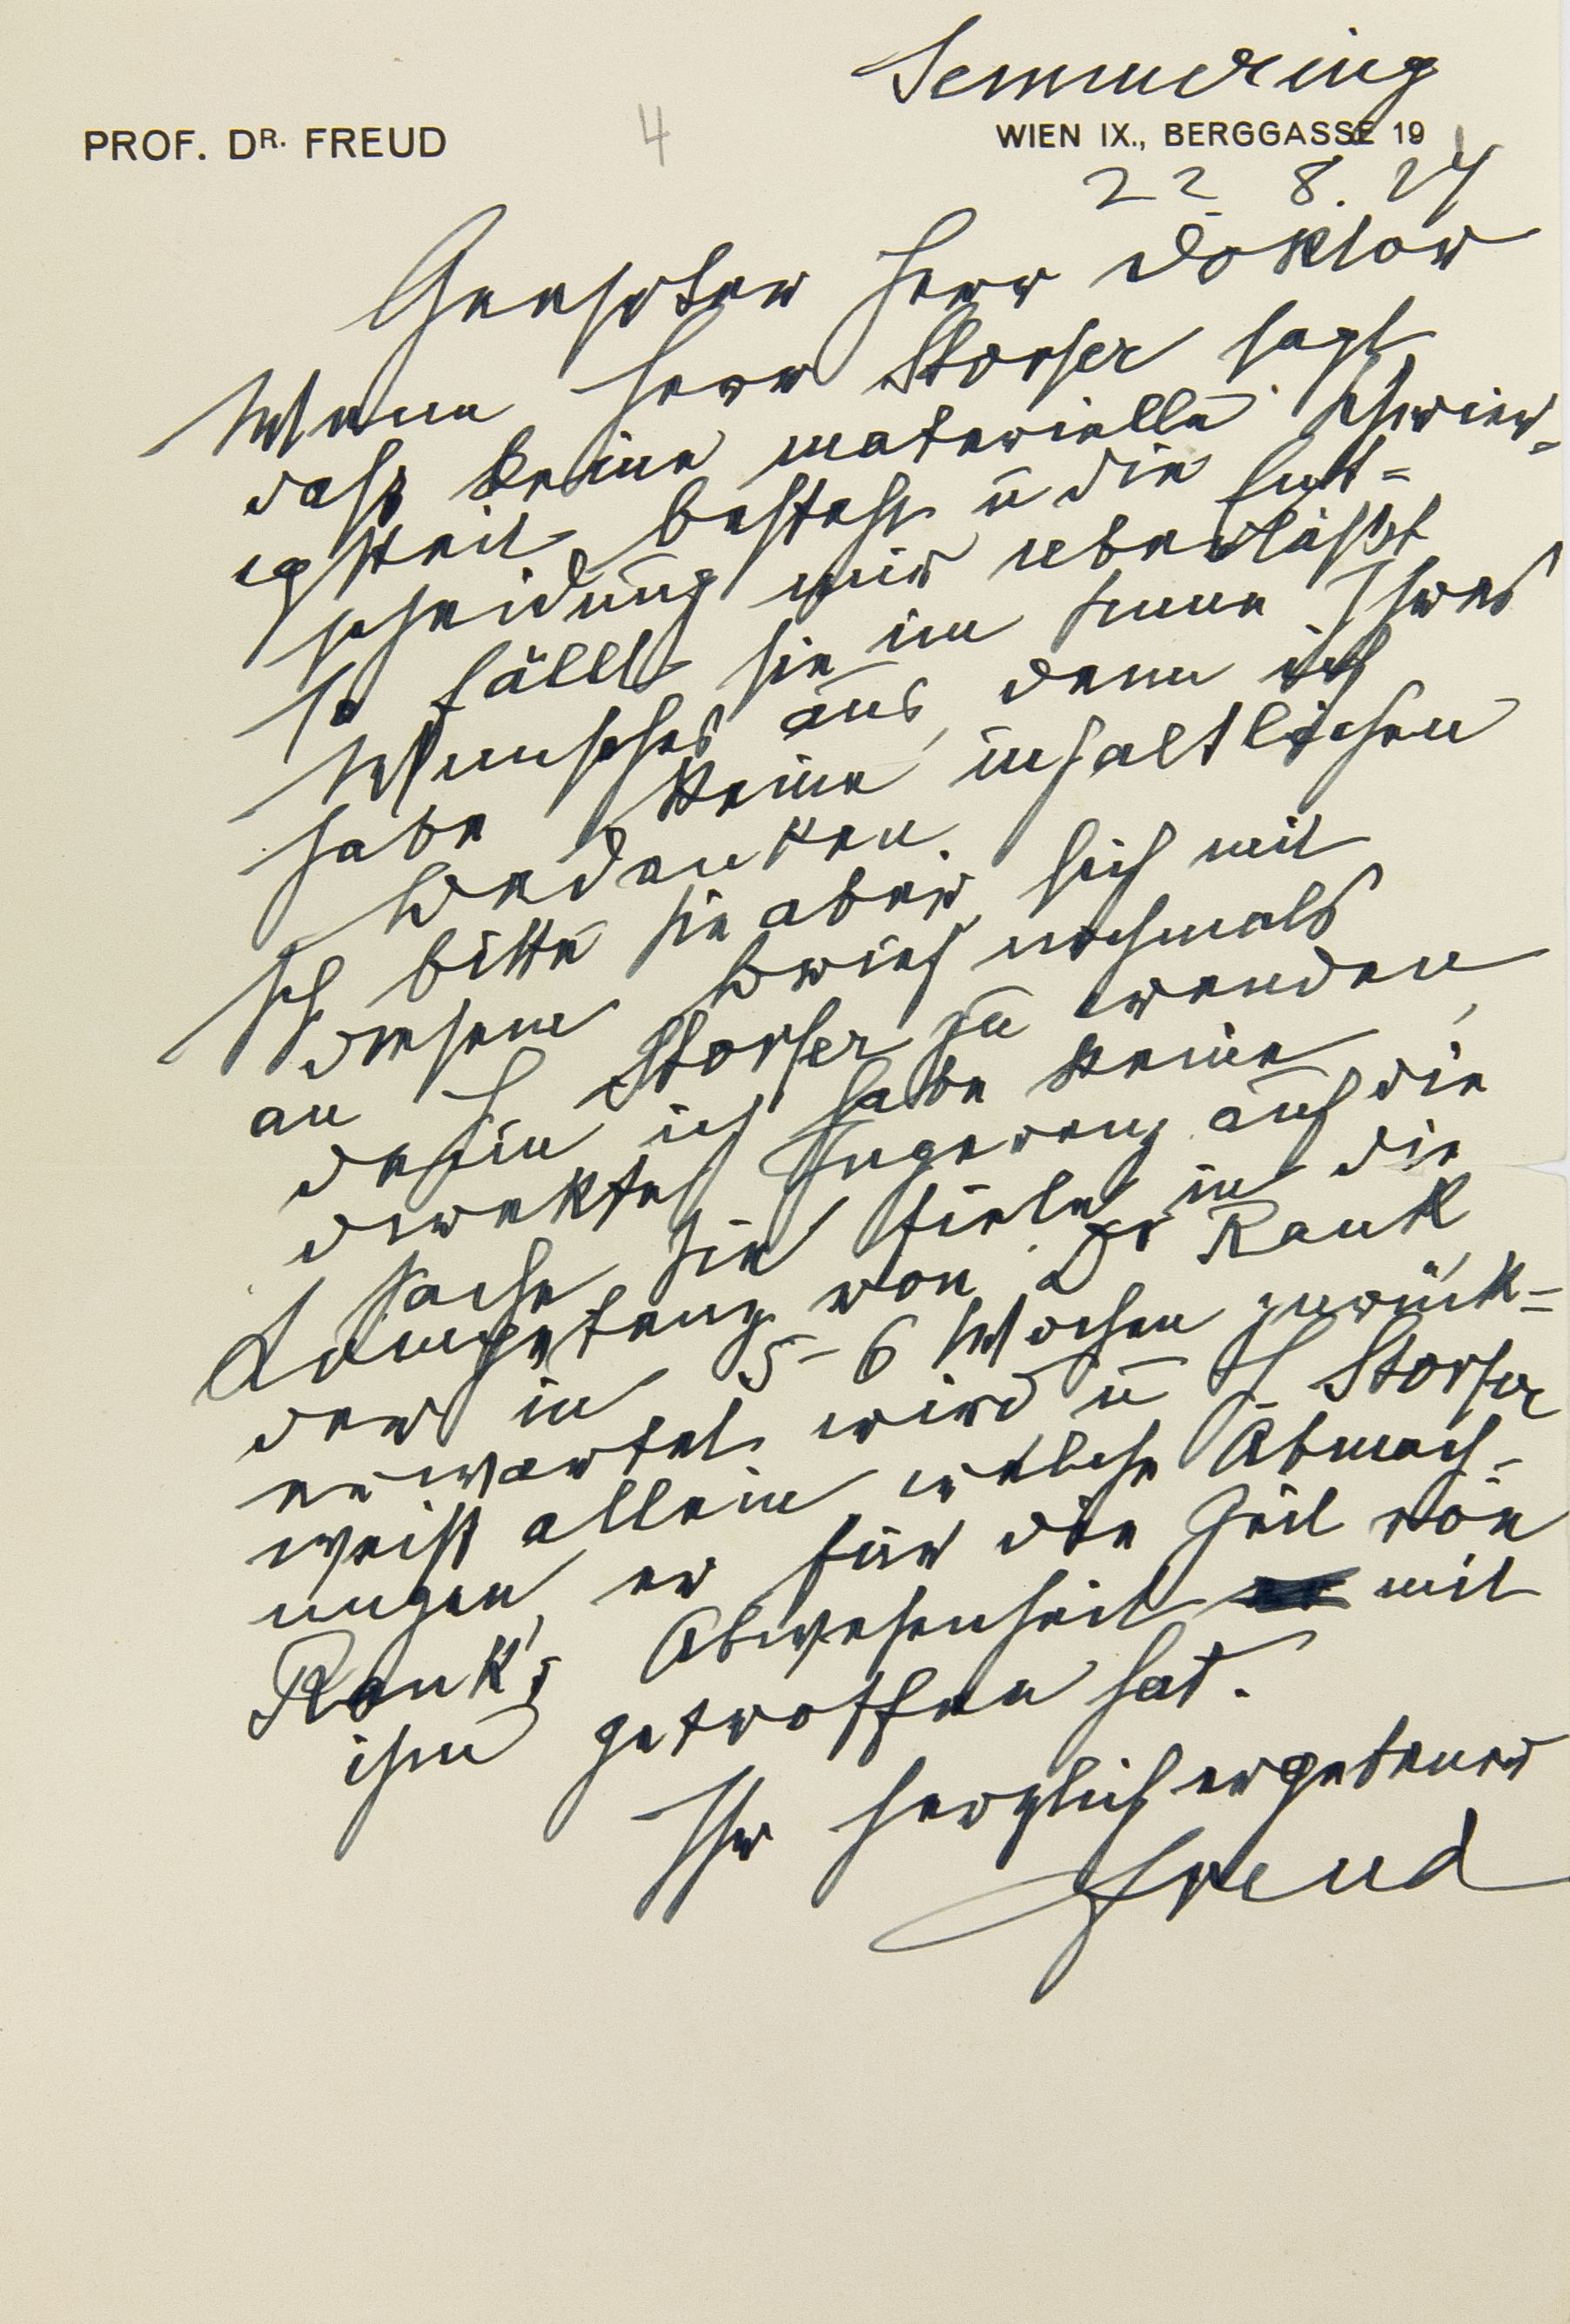 Semmering
PROF. DR. FREUD
4
WIEN IX., BERGGASSE 19
22. 8. 24
Geehrter Herr Doktor
Wenn Herr Storfer sagt
daß keine materielle Schwier-
igkeit besteht u die Ent-
scheidung mir überläßt
so fällt sie im Sinne Ihres
Wunsches aus, denn ich
habe keine inhaltlichen
Bedenken.
Ich bitte Sie aber, sich mit
diesem Brief nochmals
an H Storfer zu wenden,
denn ich habe keine
direkte Ingerenz auf die
Sache. Sie fiele in die
Kompetenz von Dr Rank,
der in 5-6 Wochen zurück-
erwartet wird u H Storfer
weiß allein welche Abmach-
ungen er für die Zeit von
Rank's Abwesenheit mit
ihm getroffen hat.
Ihr herzlich ergebener
Freud